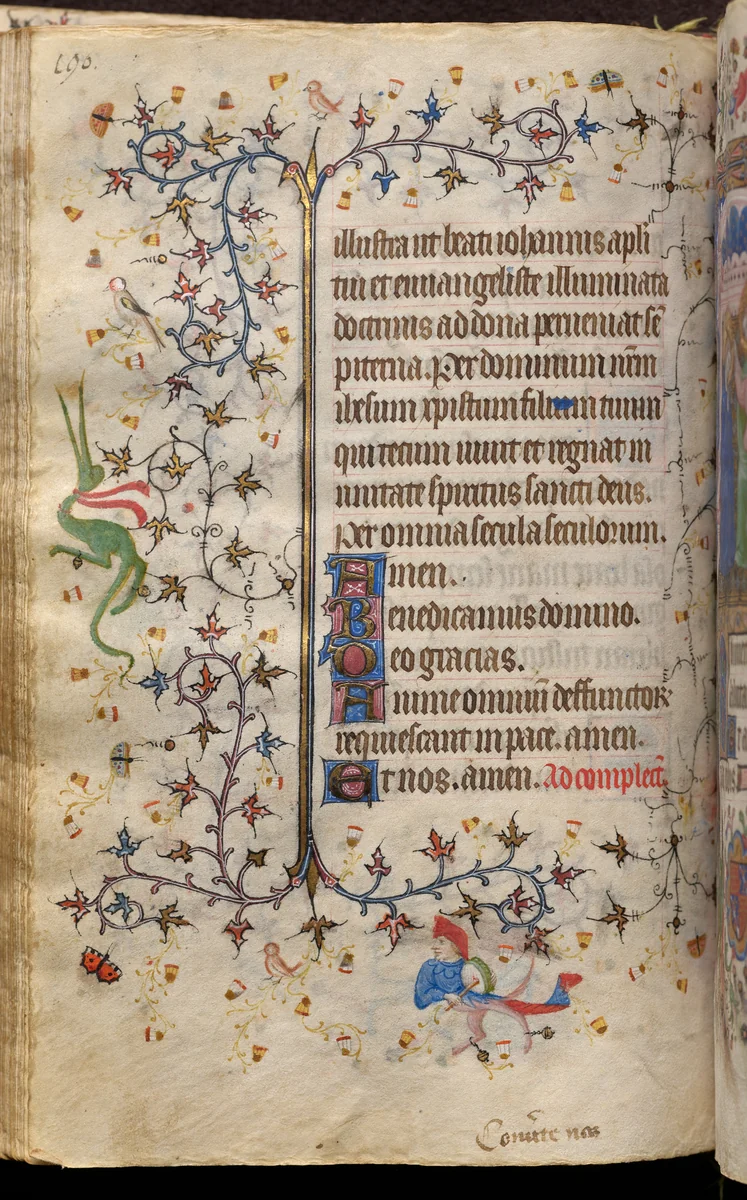 190.
illustra ut beati iohannis apl'i
tui et euuangeliste illuminata
doctrinis ad dona perueniat sē
piterna. Per dominum nr̄m
ihesum xpistum filium tuum
qui tecum uiuit et regnat in
unitate spiritus sancti deus.
Per omnia secula seculorum.
Amen.
Benedicamus domino.
Deo gracias.
Anime omniū deffunctoꝝ
requiescant in pace. amen.
Et nos. amen. Ad complect̄.
Conūte nos